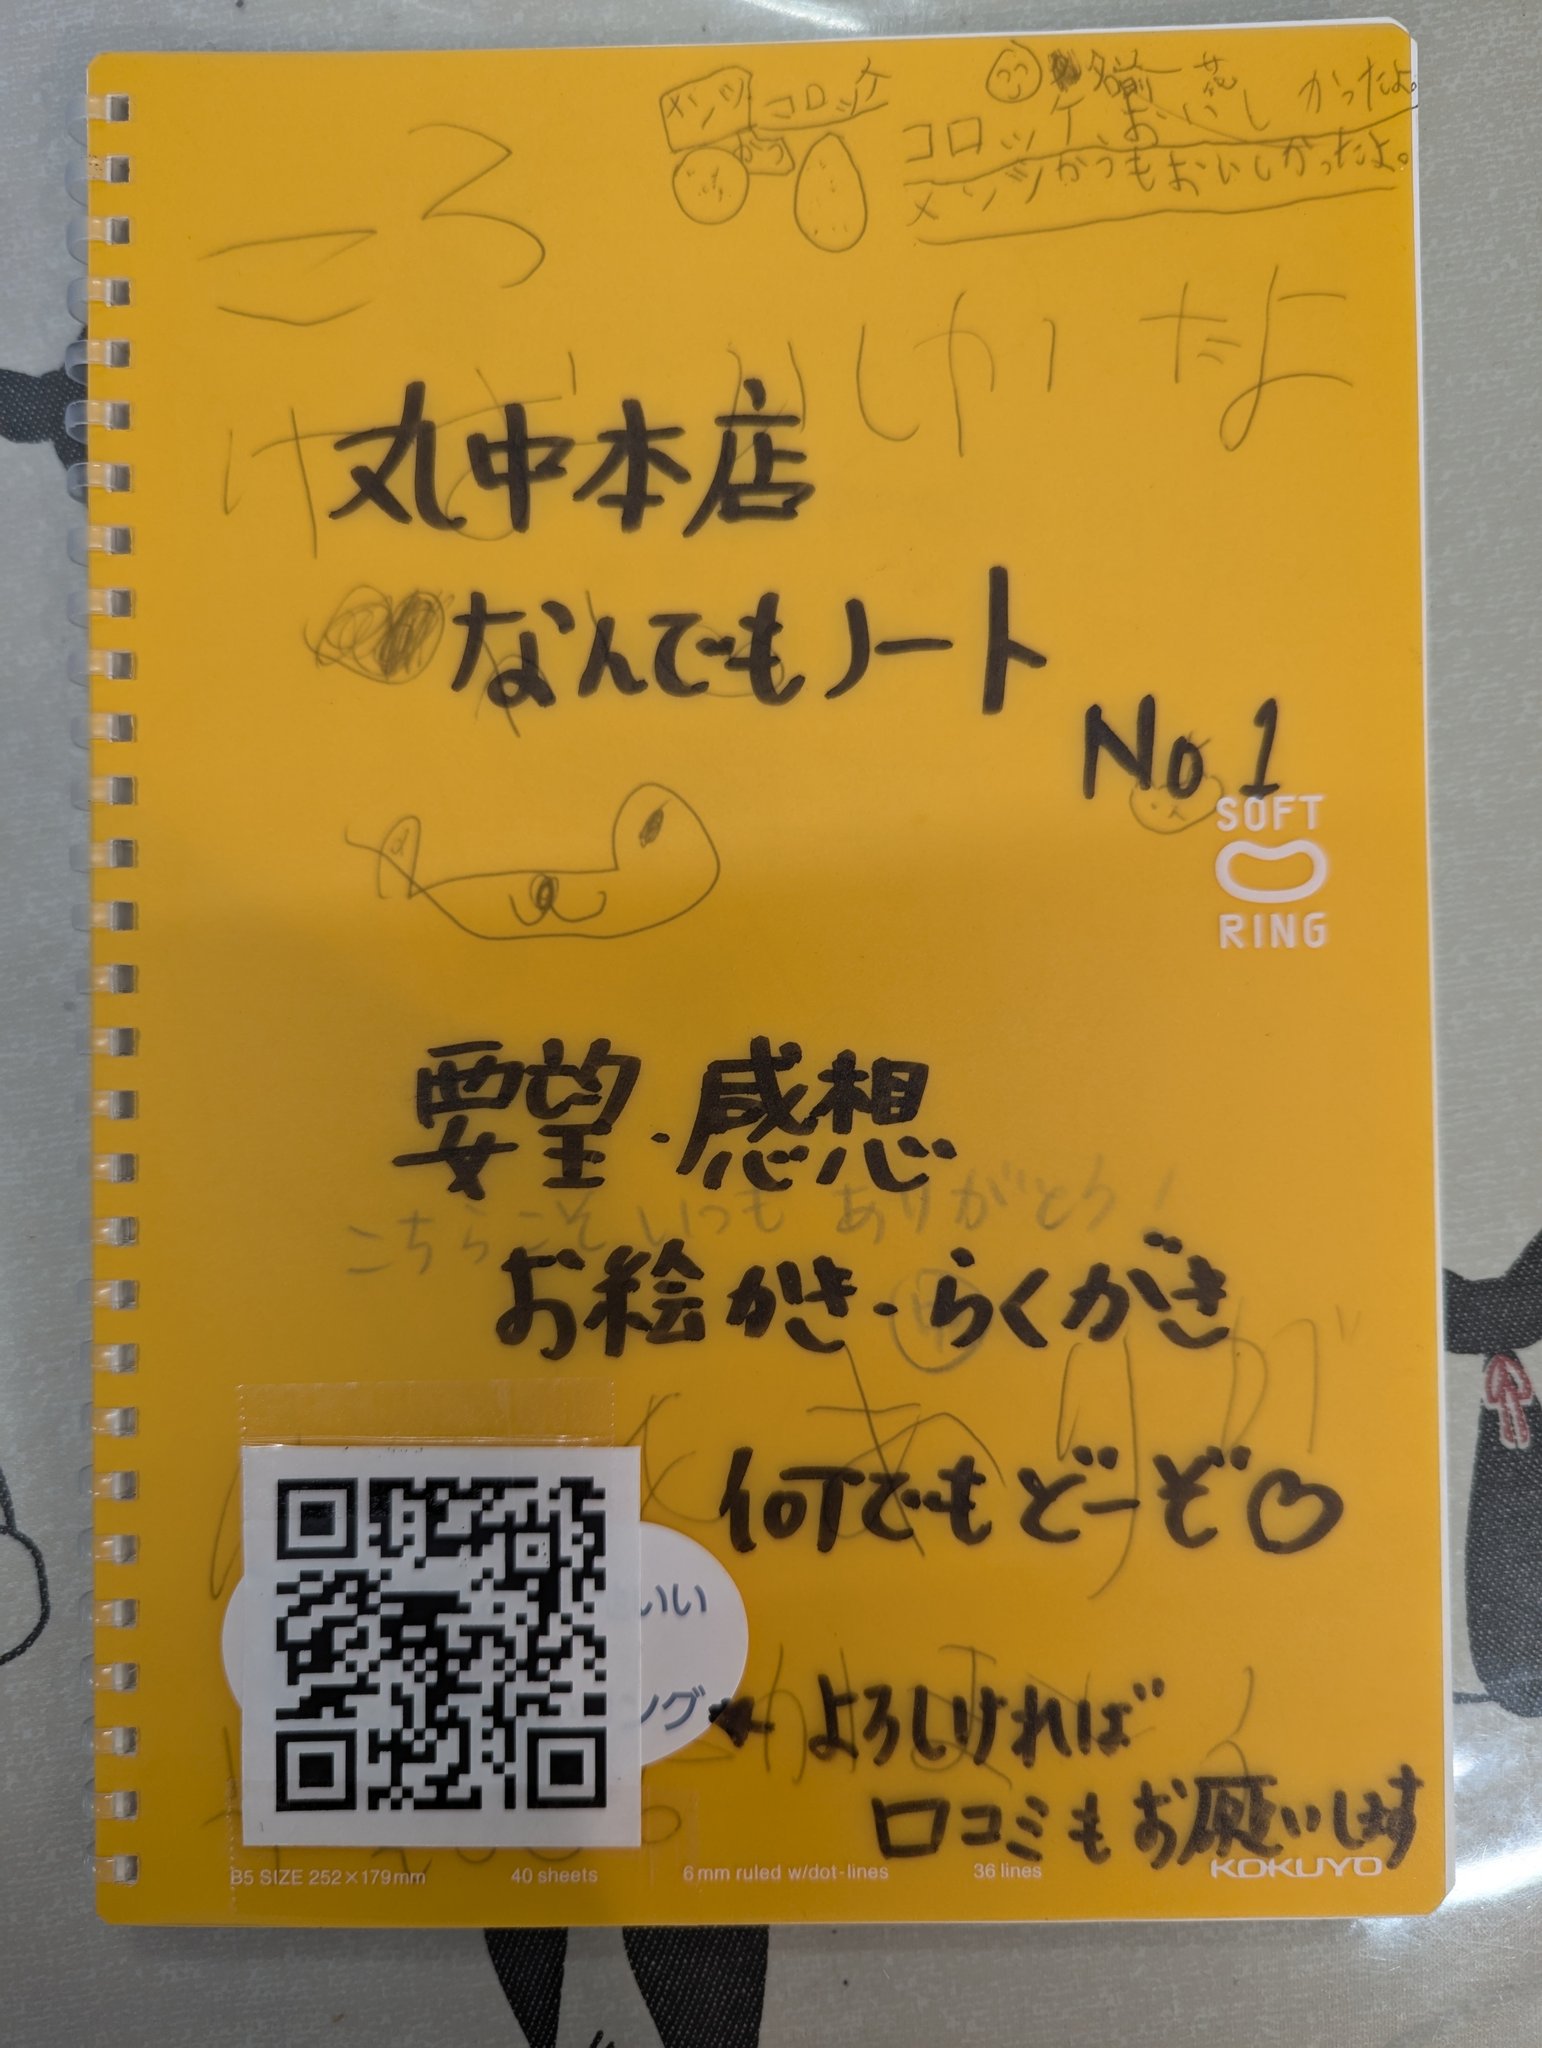 メンツ コロッケ
かつ
名前 花
コロッケ、おいしかったよ。
メンツかつもおいしかったよ。
ころ
けおいしかったよ
丸中本店
なんでもノート
No 1
SOFT
RING
要望・感想
こちらこそいつもありがとう!
お絵かき・らくがき
何でもどーぞ♡
いい
ング
よろしければ
口コミもお願いします
B5 SIZE 252×179mm 40 sheets 6mm ruled w/dot-lines 36 lines KOKUYO